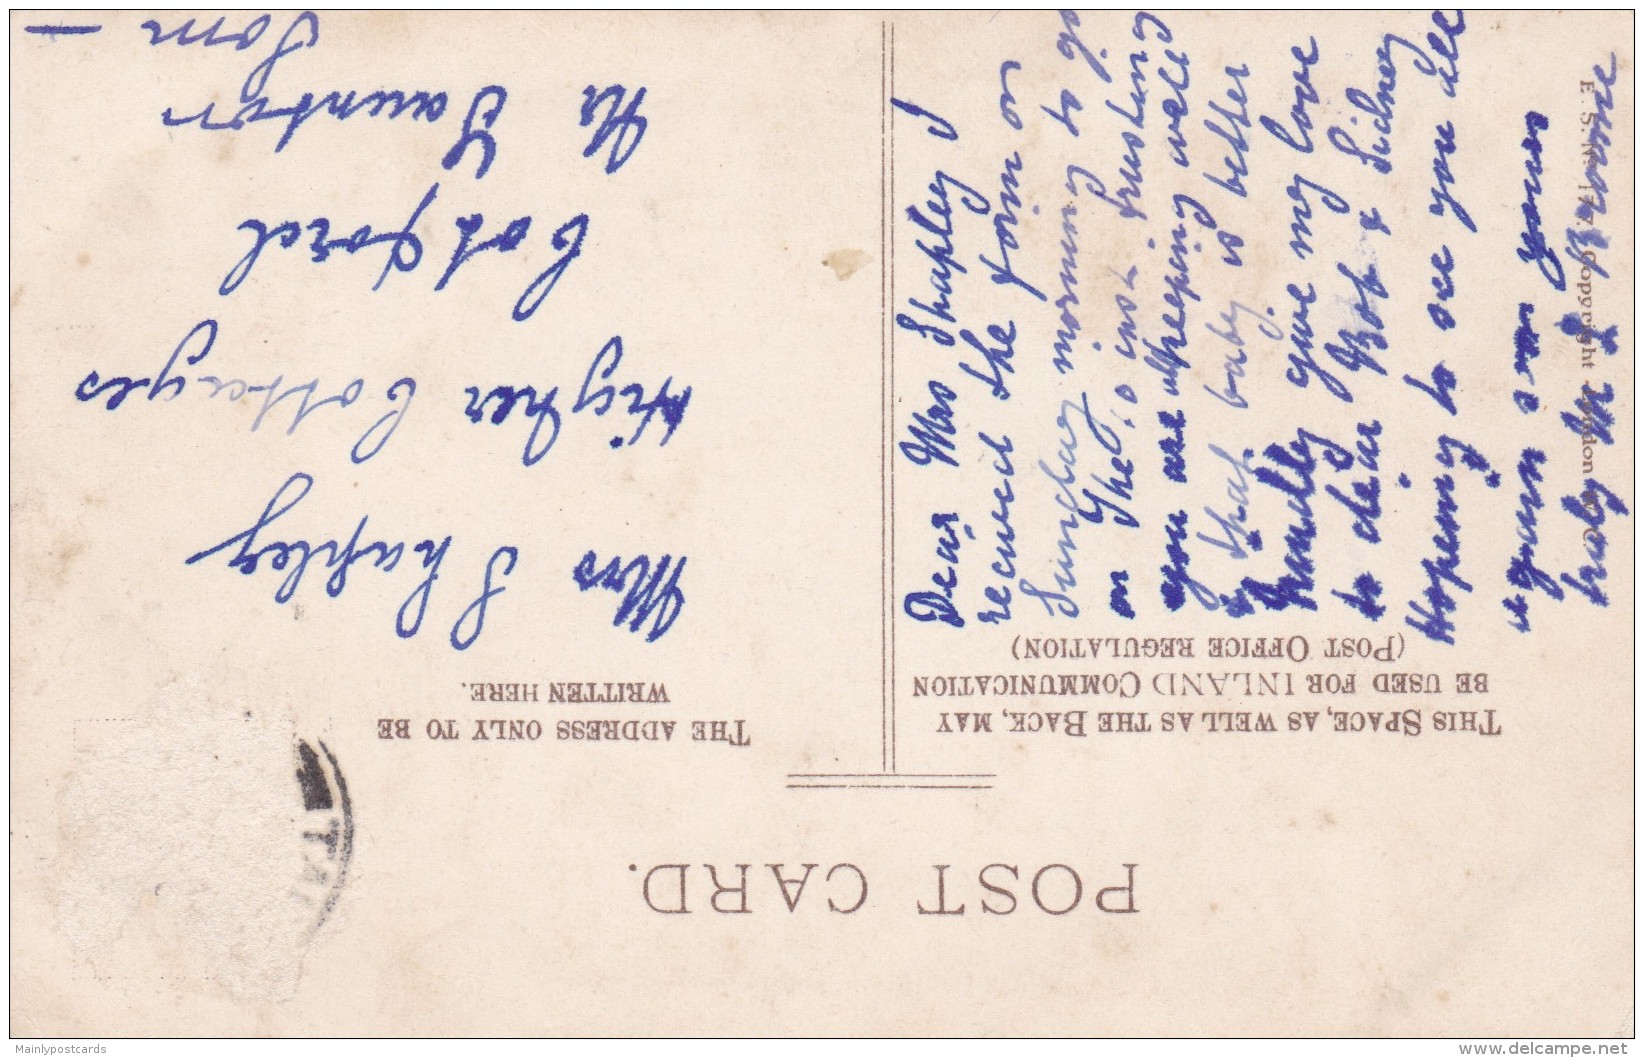 POST CARD.
THIS SPACE, AS WELL AS THE BACK, MAY
BE USED FOR INLAND COMMUNICATION
(POST OFFICE REGULATION)
THE ADDRESS ONLY TO BE
WRITTEN HERE.
Dear Mrs Shapley I
recieved the form on
Sunday morning to go
on The inst trusting
you are keeping well
& that baby is better
kindly give my love
to dear Bob & Sidney
Hopeing to see you all
again soon yours
truly
Mrs Shapley
Higher Cottages
Cotford
Nr Taunton
Som —
E. S. 17. Copyright London
TA
Mainlypostcards
delcampe.net